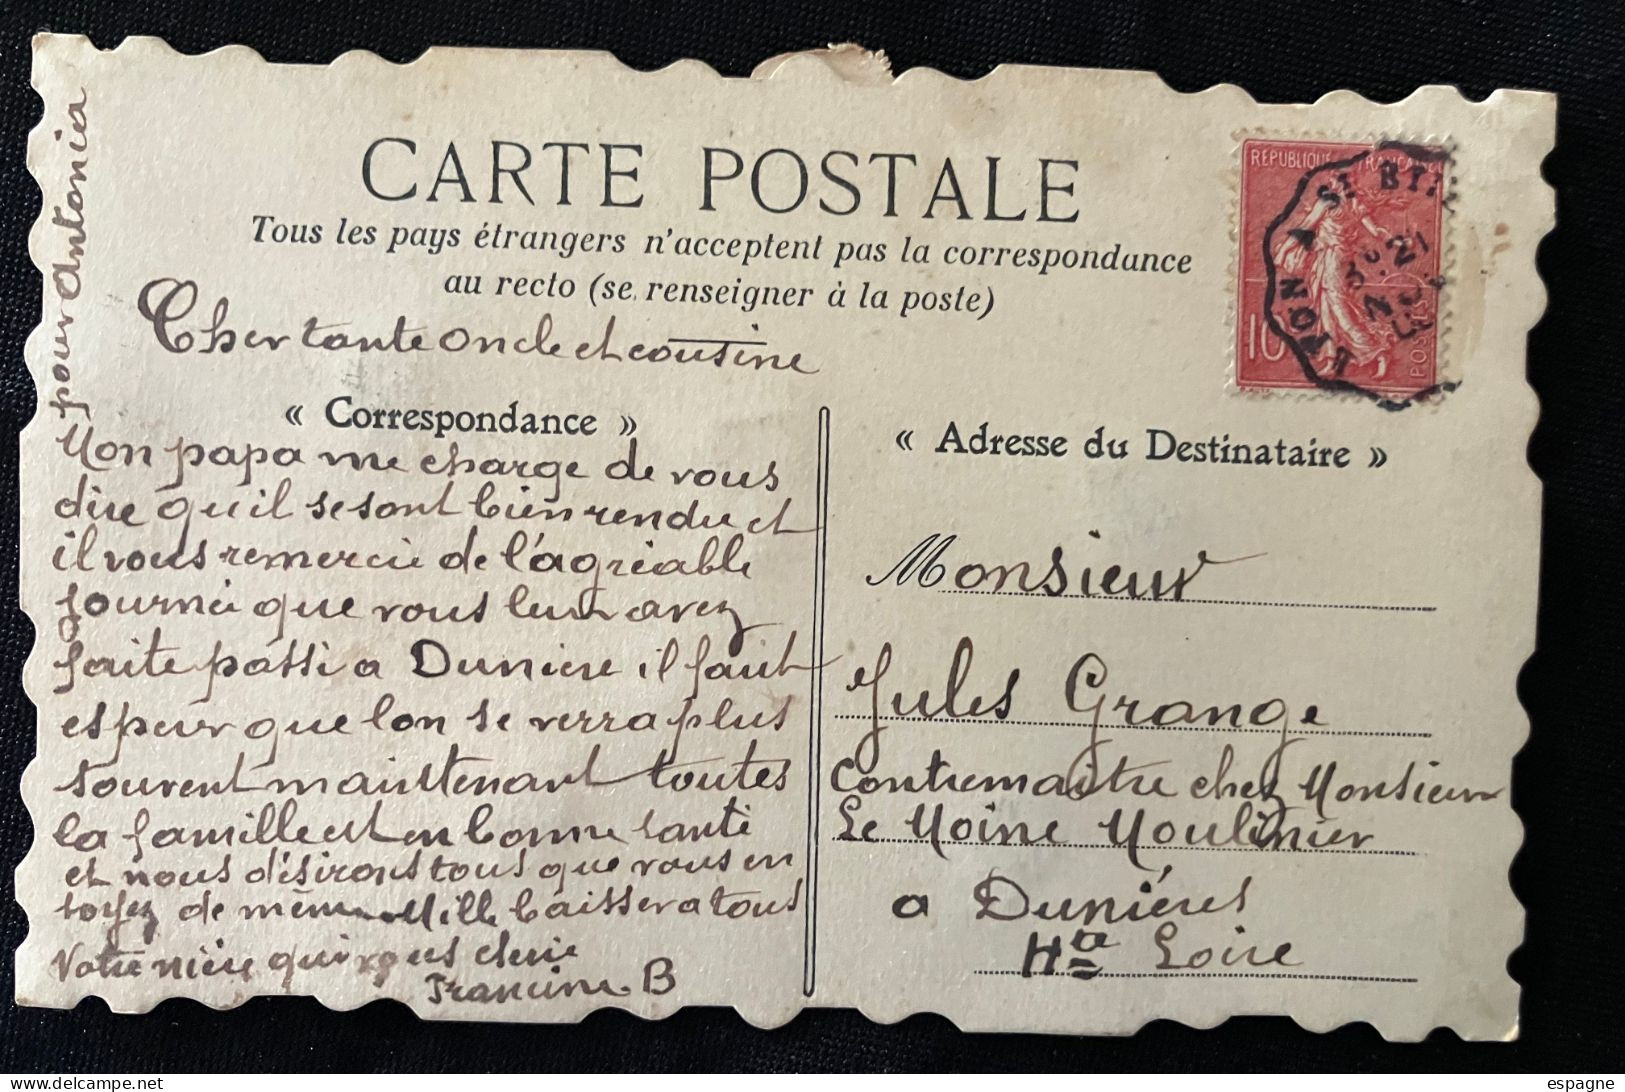 CARTE POSTALE
Tous les pays étrangers n'acceptent pas la correspondance
au recto (se renseigner à la poste)
pour Antonia
Cher tante oncle et cousine
« Correspondance »
Mon papa me charge de vous
dire qu'il se sont bien rendu et
il vous remercie de l'agréable
journéi que vous leur avez
faite passi a Duniere il faut
esperer que lon se verra plus
souvent maintenant toutes
la famille est en bonne santé
et nous désirons tous que vous en
soyez de même Mille baisser a tous
Votre nièce qui vous cherie
Francine B
RÉPUBLIQUE FRANÇAISE
10
POSTES
« Adresse du Destinataire »
Monsieur
Jules Grange
Contremaitre chez Monsieur
Le Moine Moulinier
a Duniéres
Hte Loire
espagne